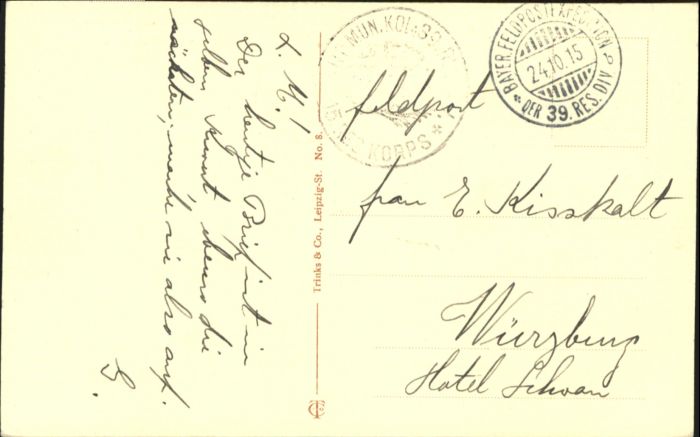 L. M.!
Der heutige Brief ist in
selben Kuvert ebenso die
nächsten, mache sie also auf.
S.
Trinks & Co., Leipzig-St. No. 8.
MUN.KOL
KORPS *
BAYER. FELDPOSTEXPEDITION
24.10.15
* DER 39. RES. DIV
Feldpost
Frau E. Kisskalt
Würzburg
Hotel Schwan